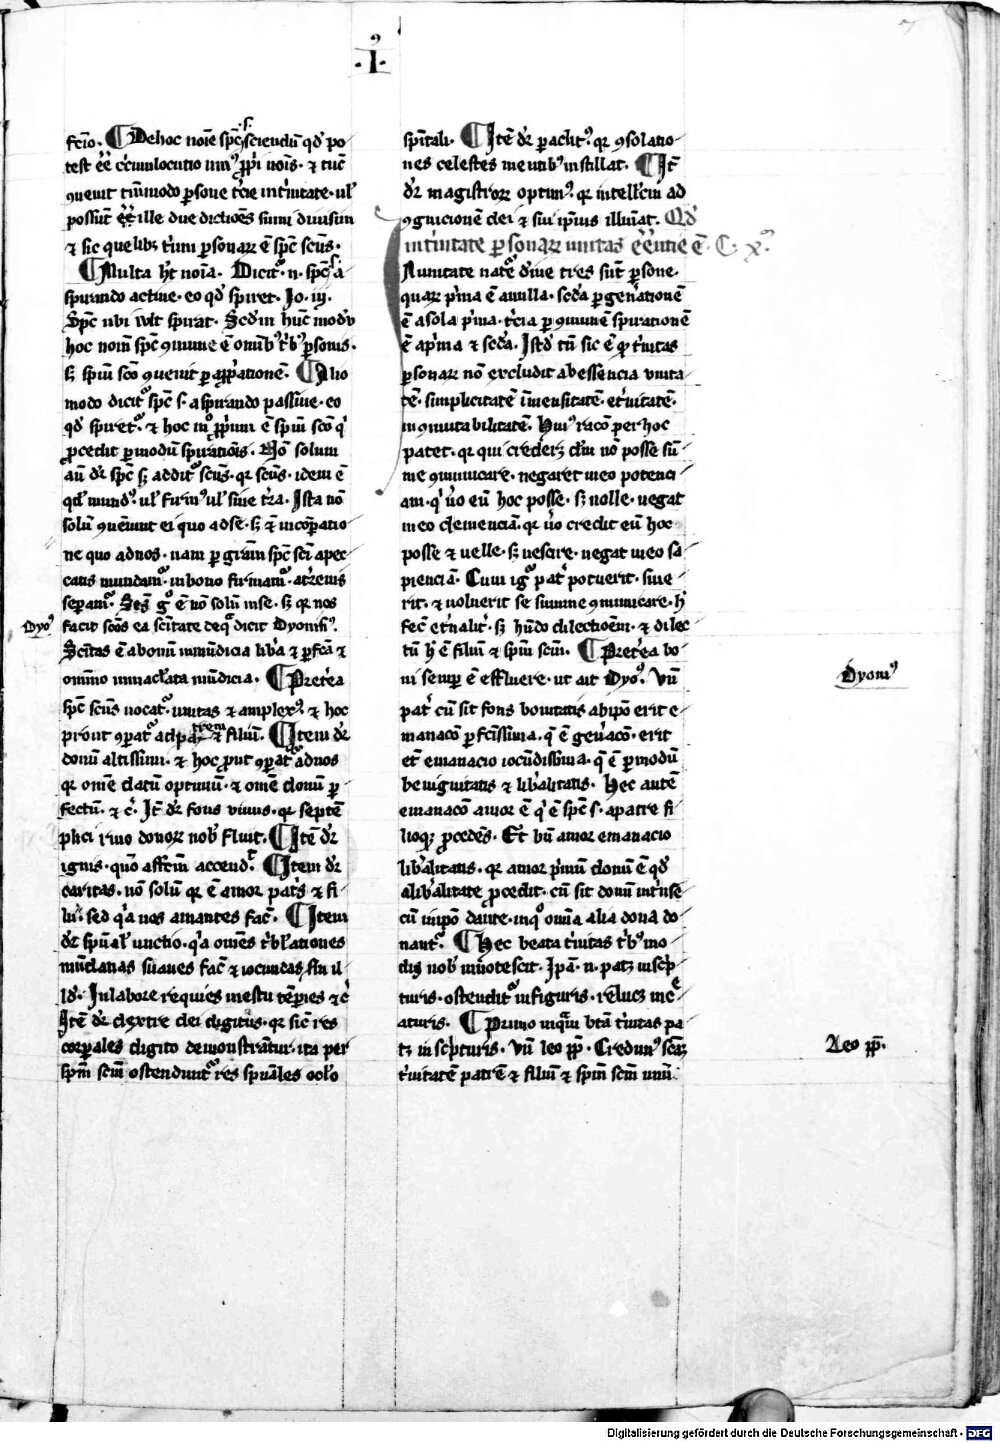 ·I·
fc̄io· ¶ De hoc noīe sp̄c s̄· sciendū qd̓ po
test eē c̓cumlocutio uni⁹ p̄p̓i noīs· ⁊ tūc
ꝯuenit tm̄modo persone t̓cie in t̓nitate· ul̓
possūt eē ille due dictiōes sumi diuisim
⁊ sic quelibꝫ t̓um personaꝝ ē sp̄c scūs·
¶ Multa hꝫ noīa· Dicit᷑ ·n· sp̄c s· a
spirando actiue· eo qd̓ spiret· Jo· iij·
Sp̄c ubi uult spirat· Scd̓m hūc modū
hoc nomē sp̄c ꝯmune ē omībꝫ t̓bꝫ personis·
sꝫ spm̄ scō ꝯuenit per app̄p̓ationē· ¶ Alio
modo dicit᷑ sp̄c s· a spirando passiue· eo
qd̓ spiret᷑· ⁊ hoc mō p̄p̓um ē spm̄ scō q̓
ꝓcedit per modū spirationis· Nō solum
aū dr̓ sp̄c sꝫ addit᷑ scūs· qꝛ scūs· idem ē
qd̓ mund⁹· ul̓ firm⁹ ul̓ sine t̓ra· Ista nō
solū ꝯueniunt ei quo ad se· sꝫ ⁊ in cōpatio
ne quo ad nos· nam per gr̄am sp̄c sc̄i a pec
catis mundam᷑· in bono firmam᷑· a t̓renis
seperam᷑· Scūs g̊ ē nō solū in se· sꝫ qꝛ nos
facit scōs ea scītate de qua dicit Dyonisi⁹·
Scītas ē ab omī inmūdicia lib̓a ⁊ perfcā ⁊
omnino inmac̓lata mūdicia· ¶ Pret̓ea
sp̄c scūs uocat᷑ unitas ⁊ amplex⁹· ⁊ hoc
prout ꝯparat᷑ ad patrem ⁊ filiū· ¶ Item dr̓
donū altissimi· ⁊ hoc ꝓut ꝯparat᷑ ad nos
qꝛ omē datū optimū· ⁊ omē donū per
fectū· ⁊ c̓· Jt̄ dr̓ fons uiuus· qꝛ septē
plici riuo donoꝝ nobꝫ fluit· ¶ Jtē dr̓
ignis· quō affcm̄ accend᷑· ¶ Item dr̓
caritas· nō solū qꝛ ē amor pat̓s ⁊ fi
lii· sed q̓a nos amantes fac̄· ¶ Item
dr̓ sp̄ual̓ unctio· q̓a om̄es t̓bl̓ationes
mūdanas suaues fac̄ ⁊ iocundas
ld̓· Jn labore requies in estu tēpies ⁊ c̓
Jtē dr̓ dextre dei digitus· qꝛ sic̄ res
corporales digito demonstrant᷑· ita per
spm̄ scm̄ ostendunt᷑ res sp̄uales
Dyo⁹
sp̄itali· ¶ Jtē dr̓ paclit⁹· qꝛ ꝯsolatio
nes celestes mentibꝫ instillat· ¶ Jt̄
dr̓ magistroꝝ optim⁹· qꝛ intellc̄m ad
ꝯgnicionē dei ⁊ sui ip̄ius illuīat· Qd̓
in t̓nitate personaꝝ unitas eēntie ē· C· x᷑·
In unitate nat᷑e d̓ine tres sūt persone·
quaꝝ p̓ma ē a nulla· scd̓a per gen̓ationē
ē a sola p̓ma· t̓cia per ꝯmunē spirationē
ē a p̓ma ⁊ scd̓a· Istd̓ tn̄ sic ē qd̓ t̓nitas
personaꝝ nō excludit ab essencia unita
tē· simplicitatē īmensitatē· et̓nitatē·
inꝯmutabilitatē· Hui⁹ racō per hoc
patet· qꝛ qui crederꝫ deū nō posse sū
me ꝯmunicare· negaret in eo potenci
am· q̓ uō eū hoc posse· sꝫ nolle· negat
in eo clemenciā· qꝛ uō credit eū hoc
posse ⁊ uelle· sꝫ nescire· negat in eo sa
pienciā· Cum ig᷑ pat̓ potuerit· sciue
rit· ⁊ uoluerit se summe ꝯmunicare· h̓
fec̄ et̓nalit̓· sꝫ hn̄do dilectioēm· ⁊ dilec
tū h̓ ē filiū ⁊ spm̄ scm̄· ¶ Pret̓ea bo
ni semp ē effluere· ut ait Dyo⁹· Vn̄
pat̓ cū sit fons bonitatis ab ipō erit e
manacō perfcissima· q̄ ē gen̓acō· erit
et emanacio iocūdissima· q̄ ē per modū
benignitatis ⁊ lib̓alitatis· Hec autē
emanacō amor ē q̓ ē sp̄c s· a patre fi
lioqꝫ procedēs· Et bn̄ amor emanacio
lib̓alitatis· qꝛ amor p̓mū donū ē qd̓
a lib̓alitate ꝓcedit· cū sit donū int̓nse
cū in ipō dante· in quo om̄ia alia dona do
nant᷑· ¶ Hec beata t̓nitas t̓bꝫ mo
dis nobꝫ innotescit· Jpā ·n· patꝫ in scr̓p
turis· ostendit᷑ in figuris· relucꝫ in c̓e
aturis· ¶ Primo inquā bt̄a t̓nitas pa
tꝫ in scr̓pturis· Vn̄ leo pp̄· Credim⁹ scāꝫ
t̓nitatē patrē ⁊ filiū ⁊ spm̄ scm̄ unū
Dyoni⁹
Leo pp̄·
Digitalisierung gefördert durch die Deutsche Forschungsgemeinschaft - DFG